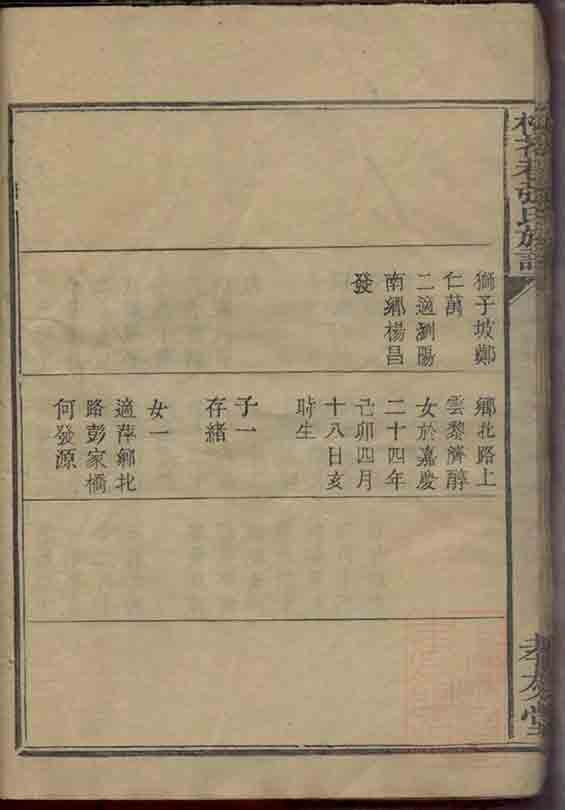 獅子坡鄭
仁萬
二適瀏陽
南鄉楊昌
發
鄉北路上
雲黎濟醇
女於嘉慶
二十四年
己卯四月
十八日亥
時生
子一
存緒
女一
適萍鄉北
路彭家橋
何發源
氏族譜
孝友堂